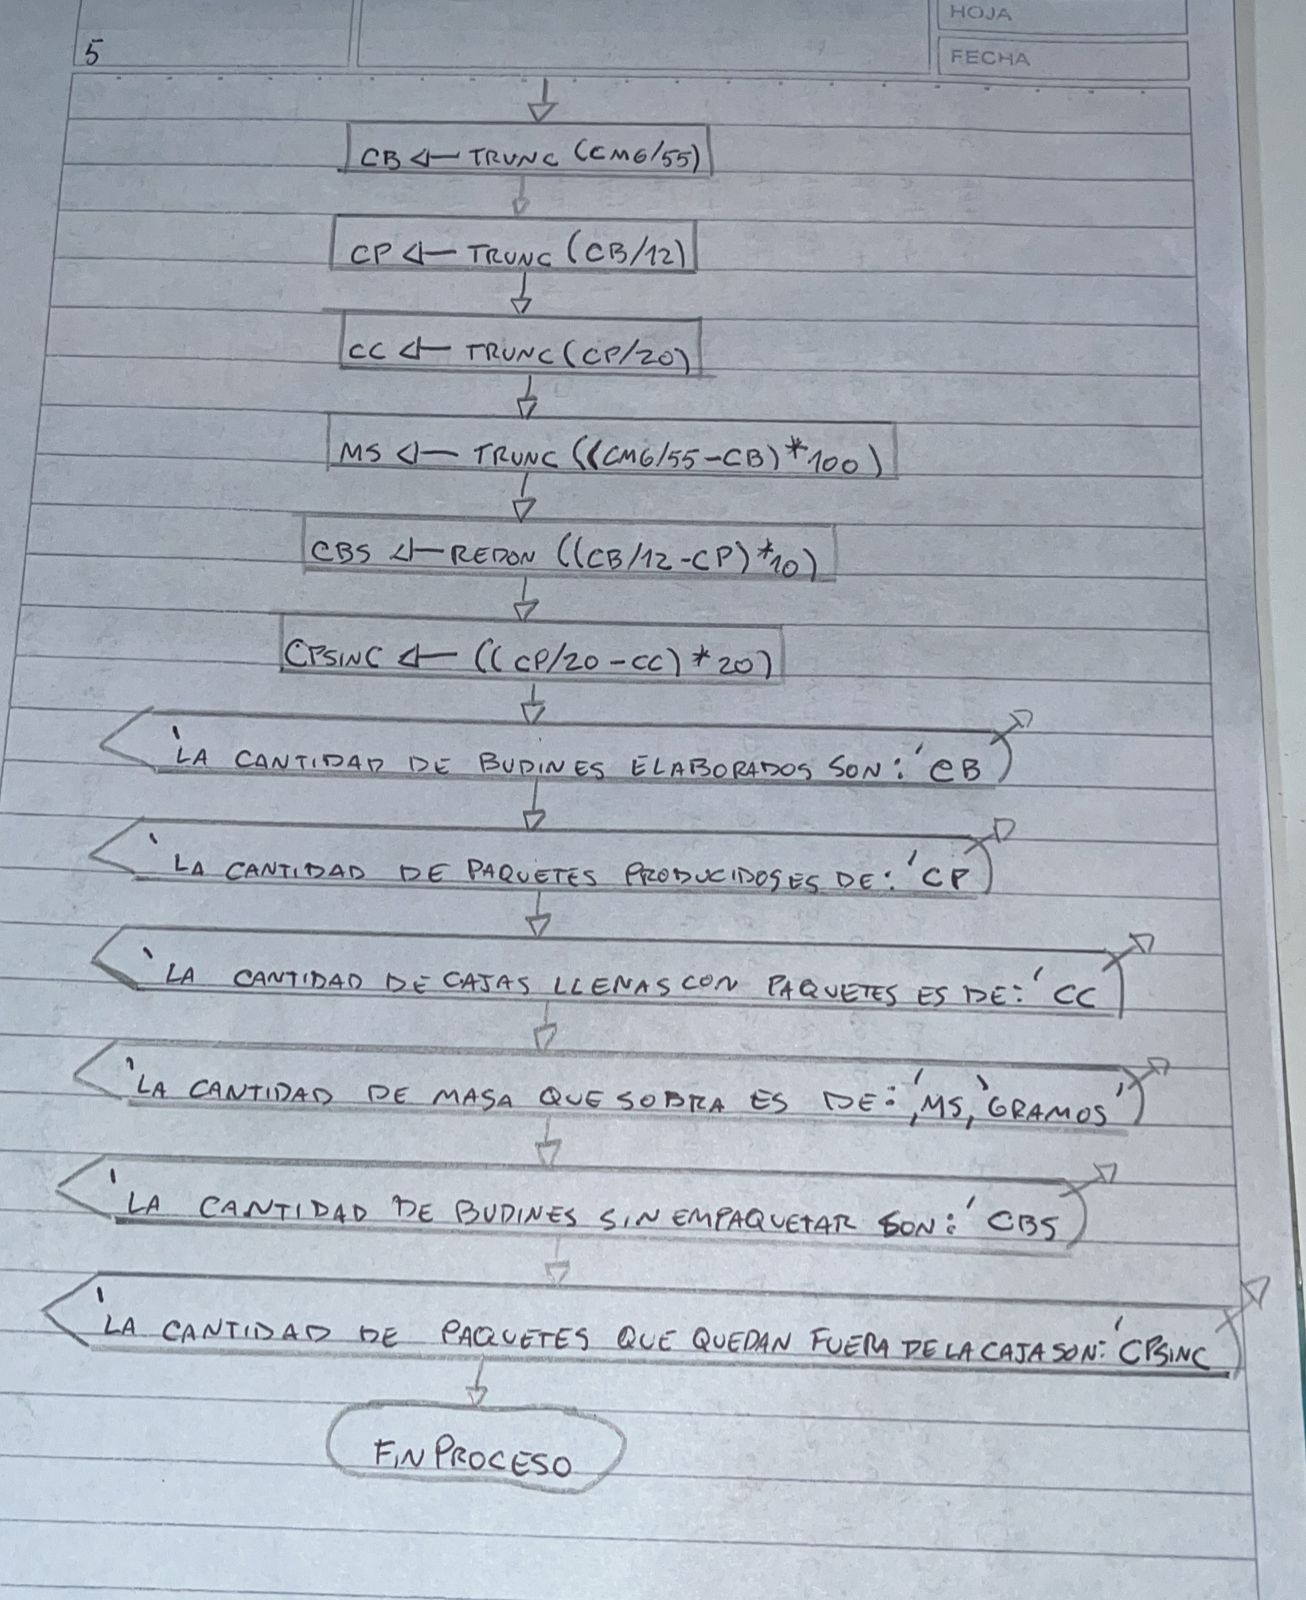 HOJA
5
FECHA
CB ← TRUNC (CMG/55)
CP ← TRUNC (CB/12)
CC ← TRUNC (CP/20)
MS ← TRUNC ((CMG/55-CB)*100)
CBS ← REDON ((CB/12-CP)*10)
CPSINC ← ((CP/20-CC)*20)
'LA CANTIDAD DE BUDINES ELABORADOS SON:' CB
'LA CANTIDAD DE PAQUETES PRODUCIDOS ES DE:' CP
'LA CANTIDAD DE CAJAS LLENAS CON PAQUETES ES DE:' CC
'LA CANTIDAD DE MASA QUE SOBRA ES DE:', MS, 'GRAMOS'
'LA CANTIDAD DE BUDINES SIN EMPAQUETAR SON:' CBS
'LA CANTIDAD DE PAQUETES QUE QUEDAN FUERA DE LA CAJA SON:' CPSINC
FIN PROCESO